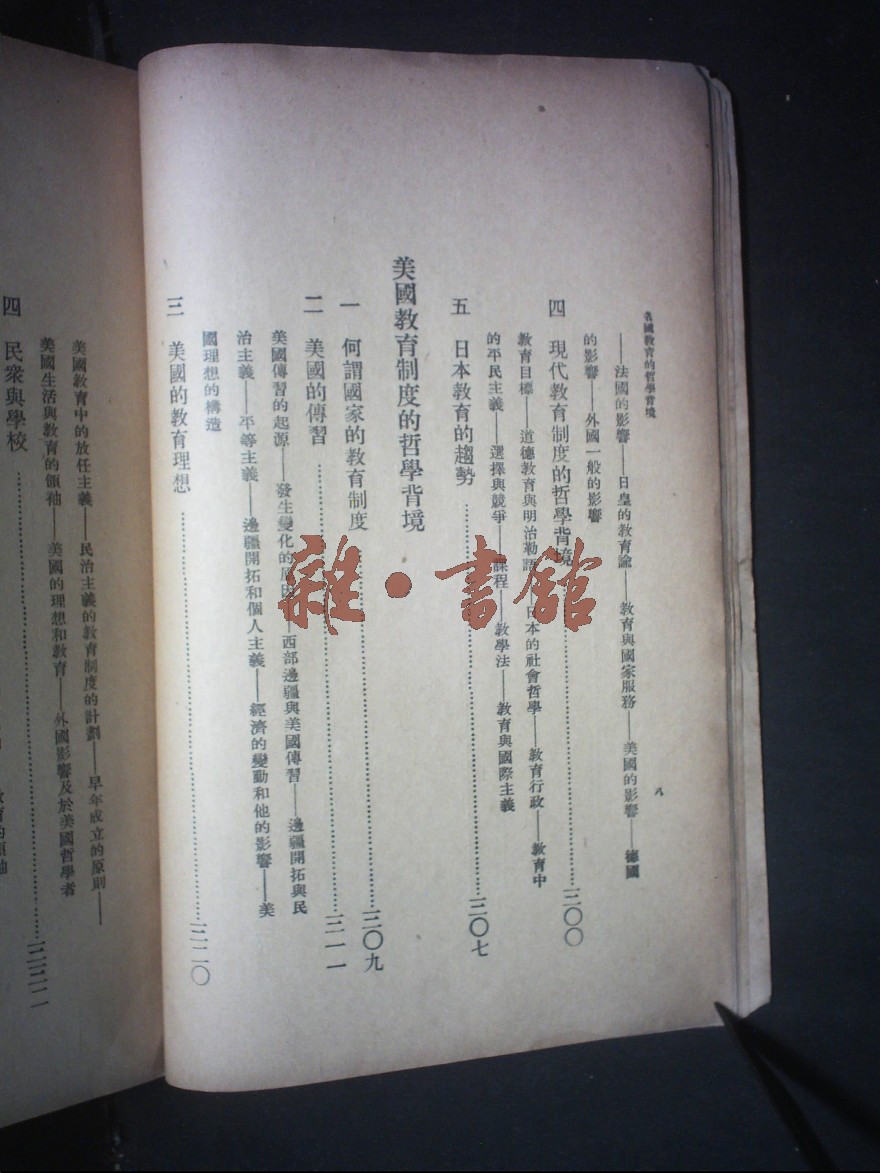 各國教育的哲學背境
八
——法國的影響——日皇的教育諭——教育與國家服務——美國的影響——德國
的影響——外國一般的影響
四 現代教育制度的哲學背境……三〇〇
教育目標——道德教育與明治勅語——日本的社會哲學——教育行政——教育中
的平民主義——選擇與競爭——課程——教學法——教育與國際主義
五 日本教育的趨勢……三〇七
美國教育制度的哲學背境
一 何謂國家的教育制度……三〇九
二 美國的傳習……三一一
美國傳習的起源——發生變化的原因——西部邊疆與美國傳習——邊疆開拓與民
治主義——平等主義——邊疆開拓和個人主義——經濟的變動和他的影響——美
國理想的構造
三 美國的教育理想……三二〇
美國教育中的放任主義——民治主義的教育制度的計劃——早年成立的原則——
美國生活與教育的領袖——美國的理想和教育——外國影響及於美國哲學者
四 民衆與學校……三三二
雜·書館